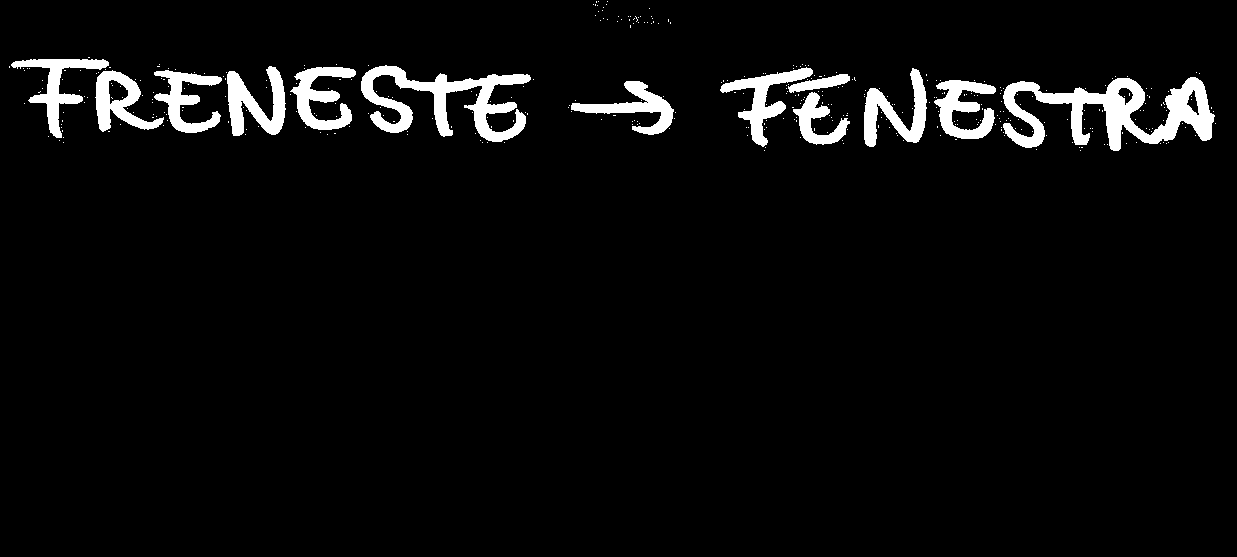 FRENESTE → FENESTRA